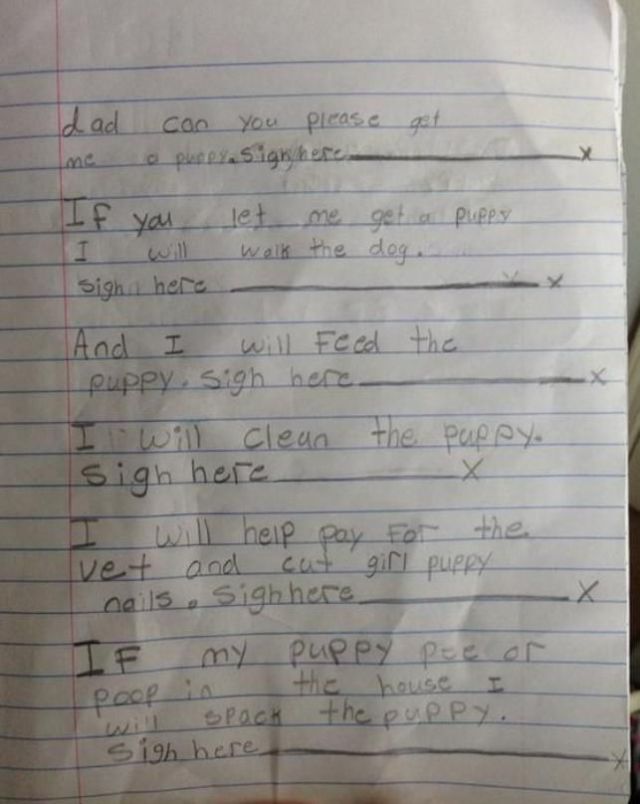 dad can you please get
me a puppy. Sigh here x
If you let me get a puppy
I will walk the dog.
Sigh here x
And I will Feed the
puppy. Sigh here x
I will clean the puppy.
Sigh here x
I will help pay For the
vet and cut girl puppy
nails. Sigh here X
IF my puppy pee or
poop in the house I
will spack the puppy.
Sigh here x